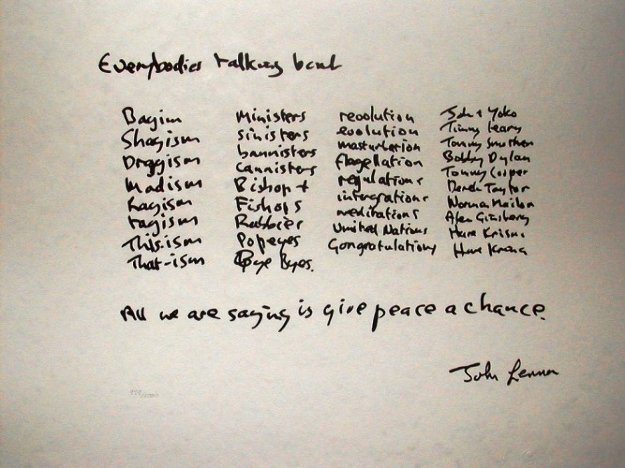 Everybodies talking bout
Bagism Ministers revolution John + Yoko
Shagism sinisters evolution Timmy Leary
Dragism bannisters masturbation Tommy Smothers
Madism cannisters flagellation Bobby Dylan
Ragism Bishops regulations Tommy Cooper
Tagism Fishops intergrations Derek Taylor
This-ism Rabbies meditations Norman Mailer
That-ism Popeyes United Nations Alan Ginsberg
Bye Byes. Congratulations Hare Krisna
Hare Krsna
All we are saying is give peace a chance.
John Lennon